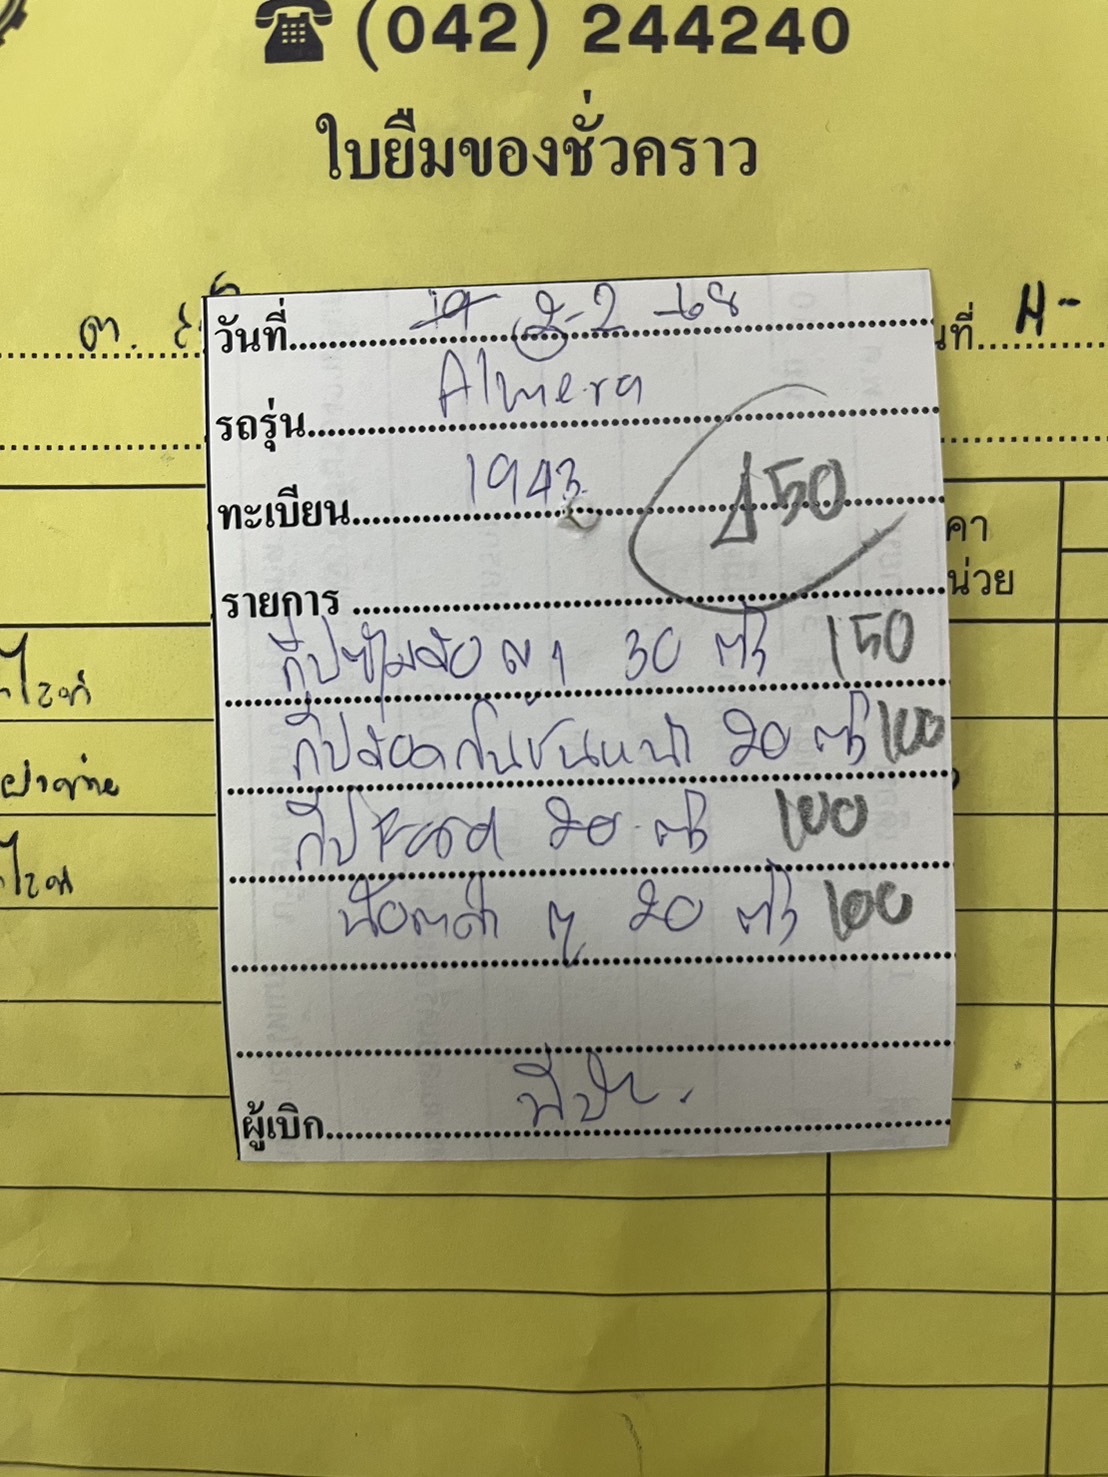 (042) 244240
ใบยืมของชั่วคราว
วันที่ 2-2-68
รถรุ่น Almera
ทะเบียน 1943
150
รายการ
กิ๊ปซุ้มล้อ 30 ตัว 150
กิ๊ป กันชนหน้า 20 ตัว 100
กิ๊ป 20 ตัว 100
น๊อตดำ 20 ตัว 100
ผู้เบิก
ต.
นที่
คา
น่วย